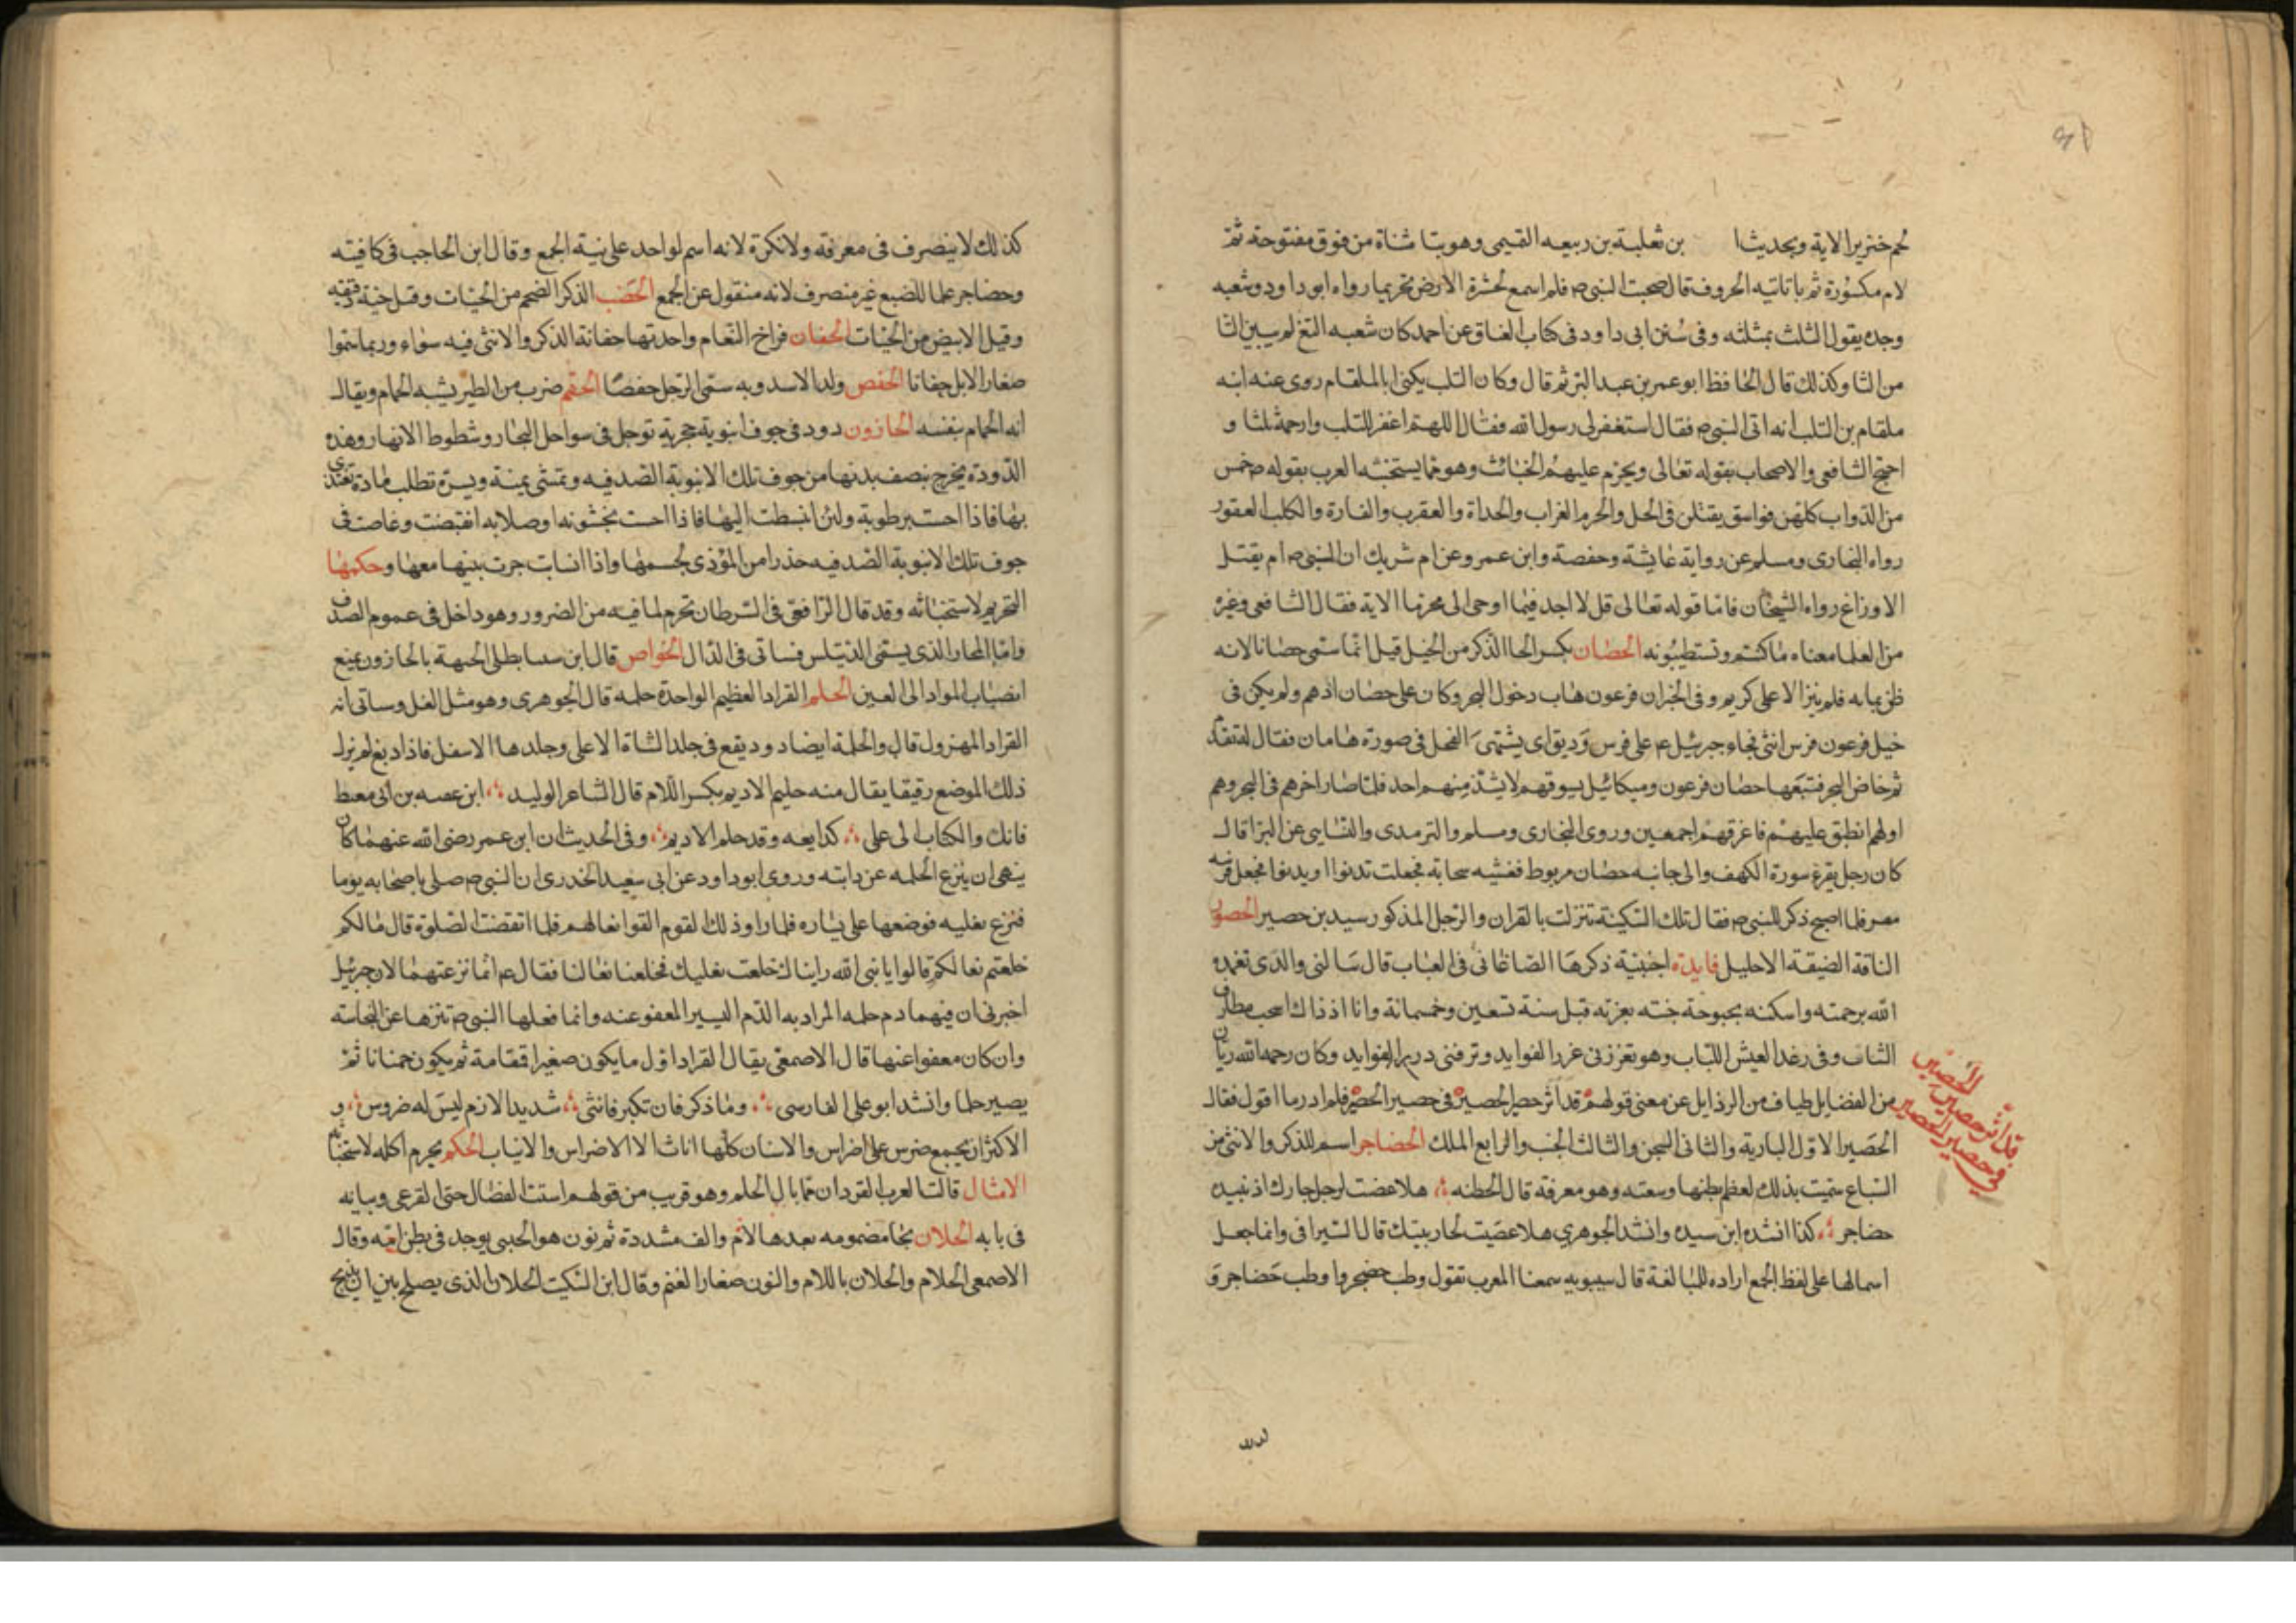 لحم خنزير الاية وبحديث ا بن ثعلبة بن ربيعه القيمى وهو بتا مثناة من فوق مفتوحة ثم
لام مكسورة ثم با تاتيه الحروف قال صحبت النبى ص فلم اسمع لحشرة الارض تحريما رواه ابو داود وشعبه
وجده يقول الثلث بمثلثه وفى سنن ابى داود فى كتاب العتاق عن احمد كان شعبه التغ لم يبين التا
من الثا وكذلك قال الحافظ ابو عمر بن عبد البر ثم قال وكان التلب يكنى ابا الملقام روى عنه ابنه
ملقام بن التلب انه اتى النبى ص فقال استغفر لى رسول الله فقال اللهم اغفر للتلب وارحمه ثلثا و
احتج الشافعى والاصحاب بقوله تعالى ويحرم عليهم الخبائث وهو مما يستخبثه العرب بقوله ص خمس
من الدواب كلهن فواسق يقتلن فى الحل والحرم الغراب والحداة والعقرب والفارة والكلب العقور
رواه البخارى ومسلم عن رواية عايشة وحفصة وابن عمر وعن ام شريك ان النبى ص ام يقتل
الاوزاغ رواه الشيخان فاما قوله تعالى قل لا اجد فيما اوحى الى محرما الاية فقال الشافعى وغيره
من العلما معناه مما كنتم وتستطيبونه الحصان بكسر الحا الذكر من الخيل قيل انما سمى حصانا لانه
ظن بمابه فلم ينز الا على كريم وفى الخبر ان فرعون هاب دخول البحر وكان على حصان ادهم ولم يكن فى
خيل فرعون فرس انثى فجاء جبرئيل ع على فرس وديق اى يشتهى الفحل فى صورة هامان فقال له تقدم
ثم خاض البحر فتبعها حصان فرعون وميكائيل يسوقهم لا يشذ منهم احد فلما صار اخرهم فى البحر وهم
اولهم انطبق عليهم فاغرقهم اجمعين وروى البخارى ومسلم والترمدى والنسايى عن البرا قال
كان رجل يقرء سورة الكهف والى جانبه حصان مربوط فغشيه سحابة فجعلت تدنوا او يدنوا فجعل فرسه
فلما اصبح ذكر للنبى ص فقال تلك السكينة تنزلت بالقران والرجل المذكور سيد بن حصير الحصور
الناقة الضيقة الاحليل فايدة اجنبية ذكرها الصاغانى فى العباب قال سالنى والدى تغمده
الله برحمته واسكنه بحبوحة جنته بعزته قبل سنة تسعين وخمسمائة وانا اذ ذاك اسحب مطارف
الشاب وفى رغد العيش اللباب وهو تعززنى غرر الفوايد وترفنى درر الفوايد وكان رحمه الله ريان
من الفضايل طياف من الرذايل عن معنى قولهم قد اثر حصير الحصير فى حصير الحصير فلم ادر ما اقول فقال
الحصير الاول البارية والثانى السجن والثالث الجنب والرابع الملك الحضاجر اسم للذكر والانثى من
السباع سميت بذلك لعظم بطنها وسعته وهو معرفة قال الحطئه هلا غضبت لرجل جارك اذ نبيده
حضاجر كذا انشده ابن سيده وانشد الجوهرى هلا عضبت لجار بيتك قال السيرافى وانما جعل
اسما لها على لفظ الجمع اراده للمبالغة قال سيبويه سمعنا العرب تقول وطب حضجر واوطب حضاجر و
قد اثر حصير الحصير
فى حصير الحصير
كذلك لا ينصرف فى معرفة ولا نكرة لانه اسم لواحد على نية الجمع وقال ابن الحاجب فى كافيته
وحضاجر علما للضبع غير منصرف لانه منقول عن الجمع الحضب الذكر الضخم من الحيات وقيل حية دقيقه
وقيل الابيض من الحيات الحفان فراخ النعام واحدتها حفانة الذكر والانثى فيه سواء وربما سموا
صغار الابل حفانا الحفص ولد الاسد وبه سمى الرجل حفصا الحقم ضرب من الطير يشبه الحمام ويقال
انه الحمام بنفسه الحلزون دود فى جوف انبوبة حجرية توجد فى سواحل البحار وشطوط الانهار وهذه
الدودة يخرج بنصف بدنها من جوف تلك الانبوبة الصدفيه وتمشى يمنة ويسرة تطلب مادة تغتذى
بها فاذا احست برطوبة ولين انبسطت اليها فاذا احست بخشونه او صلابه انقبضت وغاصت فى
جوف تلك الانبوبة الصدفيه حذرا من المؤذى لجسمها واذا انسابت جرت بيتها معها وحكمها
التحريم لاستخباثه وقد قال الرافعى فى السرطان تحرم لما فيه من الضرور وهو داخل فى عموم الصدف
واما المحار الذى يسمى الدنيلس فساتى فى الدال الخواص قال ابن سينا يطلى الجبهة بالحلزون يمنع
انصباب المواد الى العين الحلم القراد العظيم الواحدة حلمه قال الجوهرى وهو مثل القمل وساتى انه
القراد المهزول قال والحلمة ايضا دود يقع فى جلد الشاة الاعلى وجلدها الاسفل فاذا دبغ لم يزل
ذلك الموضع رقيقا يقال منه حلم الاديم بكسر اللام قال الشاعر الوليد ابن عصبه بن ابى معيط
فانك والكتاب الى على كدابعه وقد حلم الاديم وفى الحديث ان ابن عمر رضى الله عنهما كان
ينهى ان ينزع الحلمه عن دابته وروى ابو داود عن ابى سعيد الخدرى ان النبى ص صلى باصحابه يوما
فنزع نعليه فوضعها على يساره فلما راو ذلك القوم القوا نعالهم فلما انقضت الصلوة قال مالكم
خلعتم نعالكم قالوا يا نبى الله رايناك خلعت نعليك فخلعنا نعالنا فقال ع انما نزعتهما لان جبرئيل
اخبرنى ان فيهما دم حلمه المراد به الدم اليسير المعفو عنه وانما فعلها النبى ص تنزها عن النجاسه
وان كان معفوا عنها قال الاصمعى يقال القراد اول ما يكون صغيرا قمقامة ثم يكون حمنانا ثم
يصير حلما وانشد ابو على الفارسى وما ذكر فان تكبر فانثى شديد الازم ليس له ضروس و
الاكثر ان يجمع ضرس على اضراس والاسنان كلها اناثا الا الاضراس والانياب الحكم يحرم اكله لاستخباثه
الامثال قالت العرب القردان فما بال الحلم وهو قريب من قولهم استنت الفصال حتى القرعى وبيانه
فى بابه الحلان بحا مضمومه بعدها لام والف مشددة ثم نون هو الجدى يوجد فى بطن امه وقال
الاصمعى الحلام والحلان باللام والنون صغار الغنم وقال ابن السكيت الحلان الذى يصلح بين ان يذبح